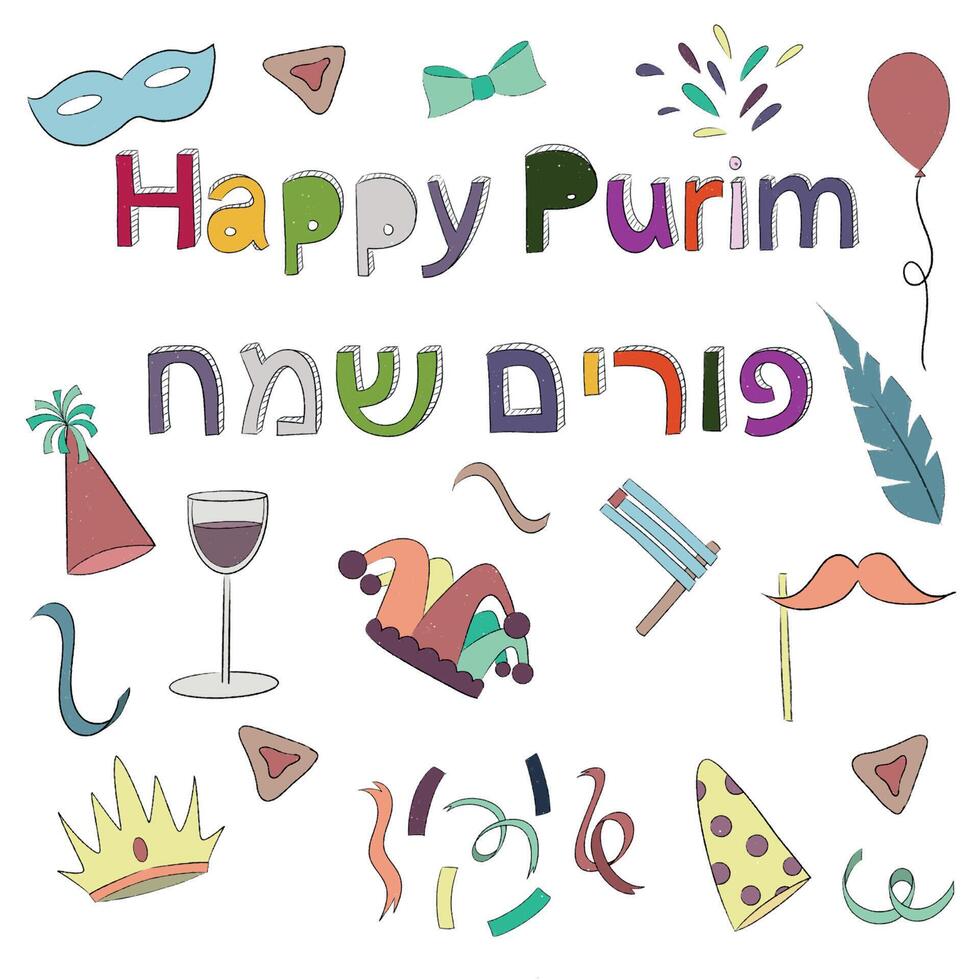 Happy Purim
פורים שמח